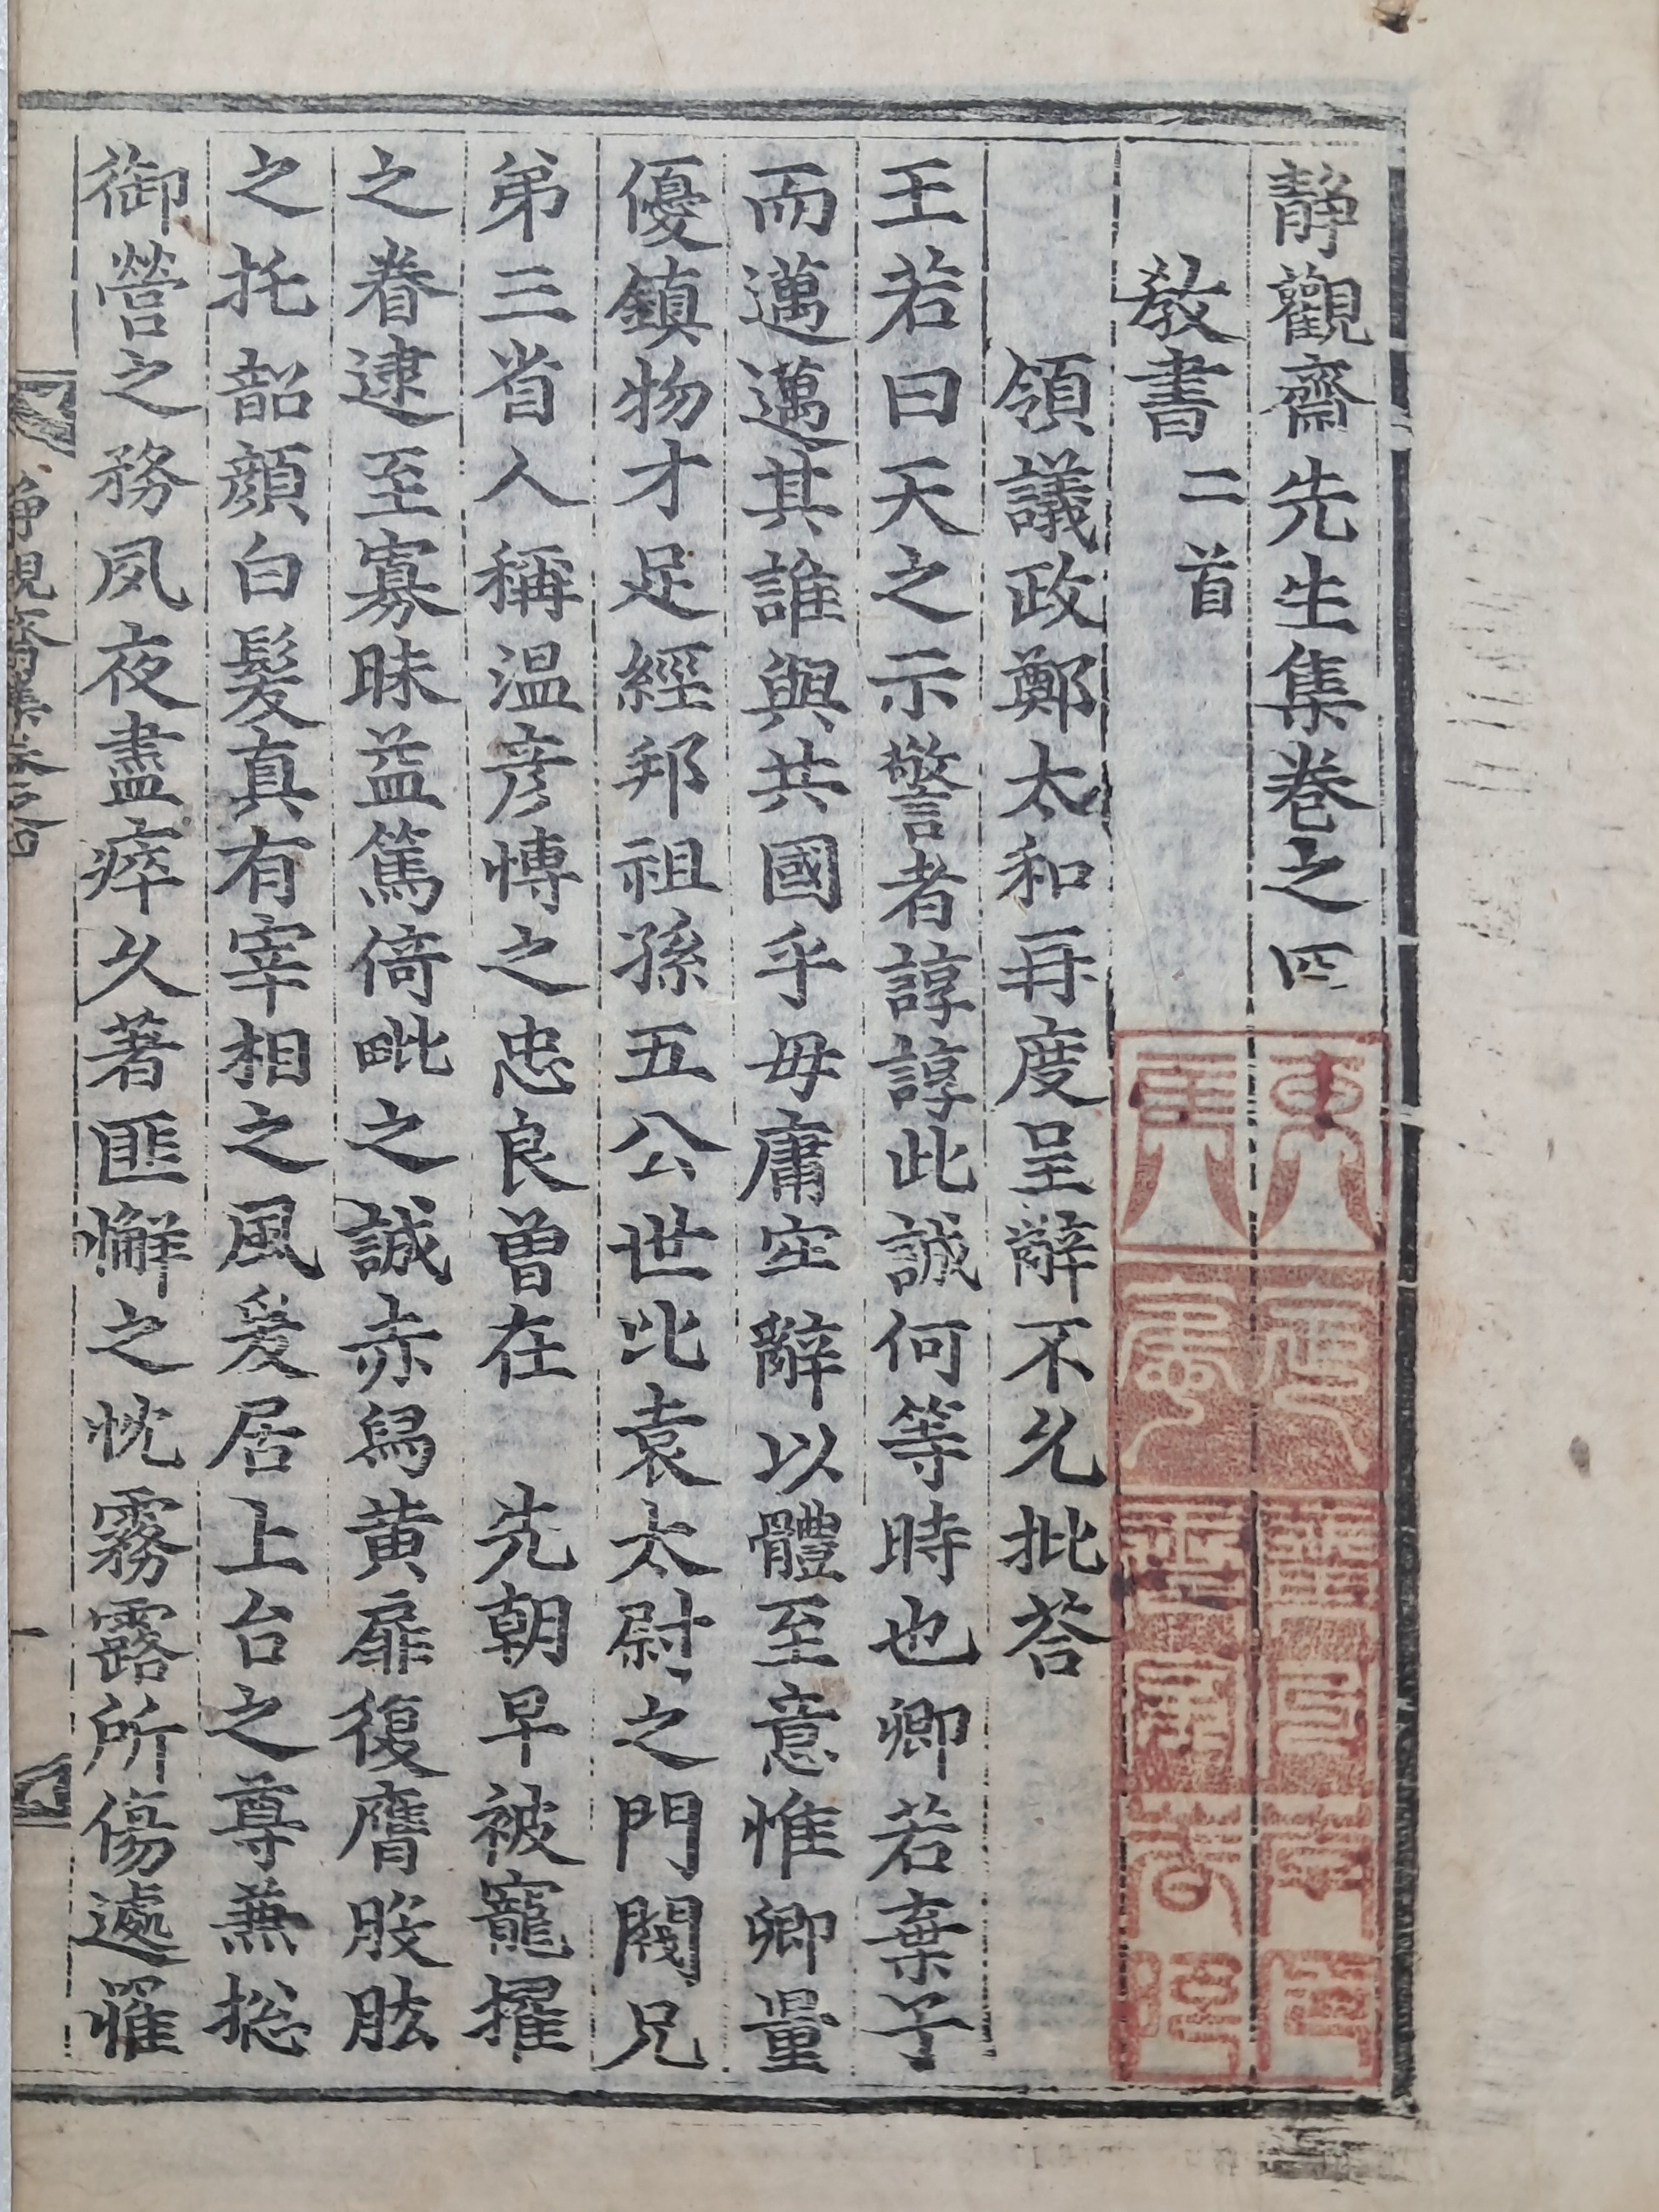 靜觀齋先生集卷之四
敎書 二首
領議政鄭太和再度呈辭不允批答
王若曰天之示警者諄諄此誠何等時也卿若棄予
而邁邁其誰與共國乎毋庸空辭以體至意惟卿量
優鎮物才足經邦祖孫五公世比袁太尉之門閥兄
弟三省人稱温彦博之忠良曾在 先朝早被寵擢
之眷逮至寡昧益篤倚毗之誠赤舄黃扉復膺股肱
之托韶顏白髮真有宰相之風爰居上台之尊兼摠
御營之務夙夜盡瘁久著匪懈之忱霧露所傷遽罹